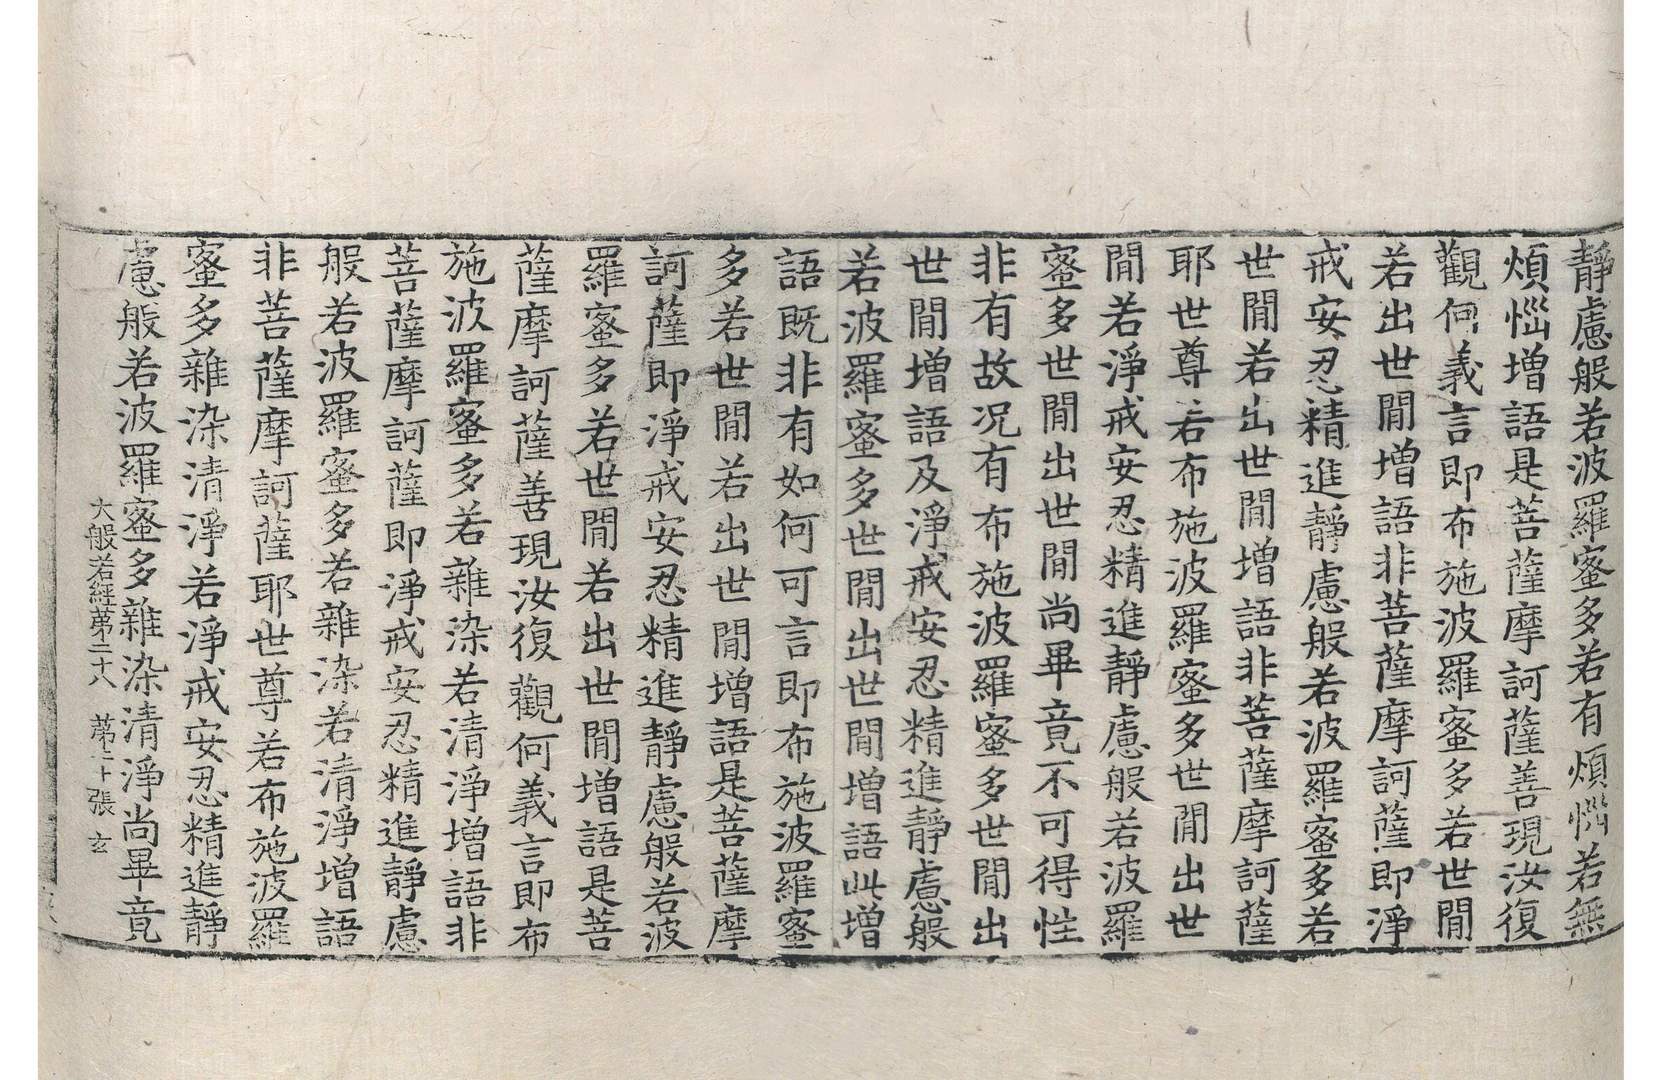 靜慮般若波羅蜜多若有煩惱若無
煩惱增語是菩薩摩訶薩善現汝復
觀何義言即布施波羅蜜多若世閒
若出世閒增語非菩薩摩訶薩即淨
戒安忍精進靜慮般若波羅蜜多若
世閒若出世閒增語非菩薩摩訶薩
耶世尊若布施波羅蜜多世閒出世
閒若淨戒安忍精進靜慮般若波羅
蜜多世閒出世閒尚畢竟不可得性
非有故况有布施波羅蜜多世閒出
世閒增語及淨戒安忍精進靜慮般
若波羅蜜多世閒出世閒增語此增
語既非有如何可言即布施波羅蜜
多若世閒若出世閒增語是菩薩摩
訶薩即淨戒安忍精進靜慮般若波
羅蜜多若世閒若出世閒增語是菩
薩摩訶薩善現汝復觀何義言即布
施波羅蜜多若雜染若清淨增語非
菩薩摩訶薩即淨戒安忍精進靜慮
般若波羅蜜多若雜染若清淨增語
非菩薩摩訶薩耶世尊若布施波羅
蜜多雜染清淨若淨戒安忍精進靜
慮般若波羅蜜多雜染清淨尚畢竟
大般若經苐二十八 苐十張 玄